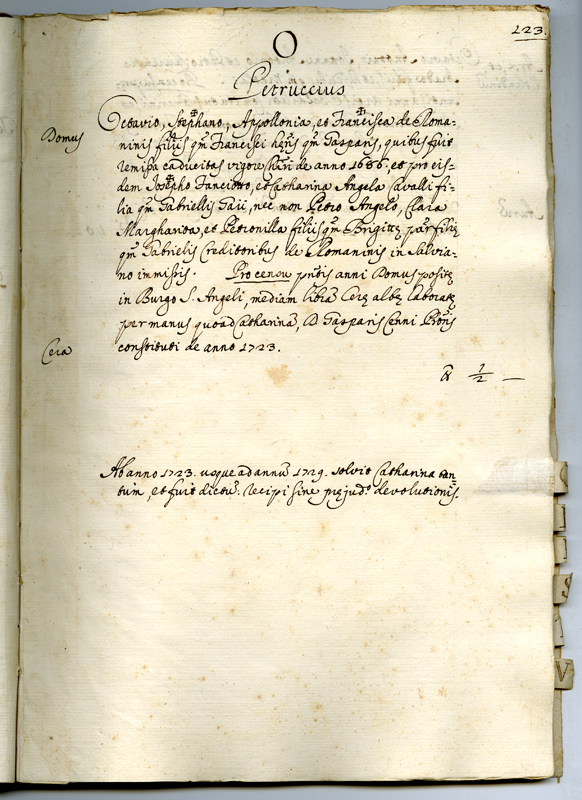 123.
O
Petruccius
Domus
Octavio, Stephano, Appollonia, et Francisca de Roma=
ninis filijs qm̃ Francisci hẽ̃nis qm̃ Gasparis, quibus fuit
remissa caducitas vigore de anno 1686, et pro eis=
dem Josepho Fanciotto, et Catharina Angela Cavalli fi=
lia qm̃ Gabriellis Gaii, nec non Petro Angelo, Clara
Margharita, et Petronilla filijs qm̃ Brigittę par filię
qm̃ Gabrielis creditoribus de Romaninis in Salvia=
no immissis. Pro censu pñtis anni Domus positę
in Burgo S. Angeli, mediam librã Cerę albę laboratę
per manus quoad Catharinã, D. Gasparis Cenni Prõris
Cera
constituti de anno 1723.
1/2 —
Ab anno 1723. usque ad annũ 1729. solvit Catharina tan=
tum, et fuit dictũ recipi sine pręjudo. devolutionis.
V